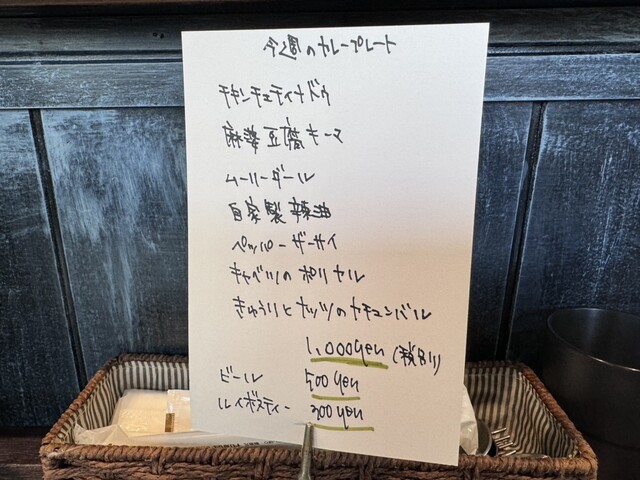 今週のカレープレート
チキンチェティナドゥ
麻婆豆腐キーマ
ムーリーダール
自家製辣油
ペッパーザーサイ
キャベツのポリヤル
きゅうりとナッツのカチュンバル
1,000yen (税別)
ビール 500yen
ルイボスティー 300yen